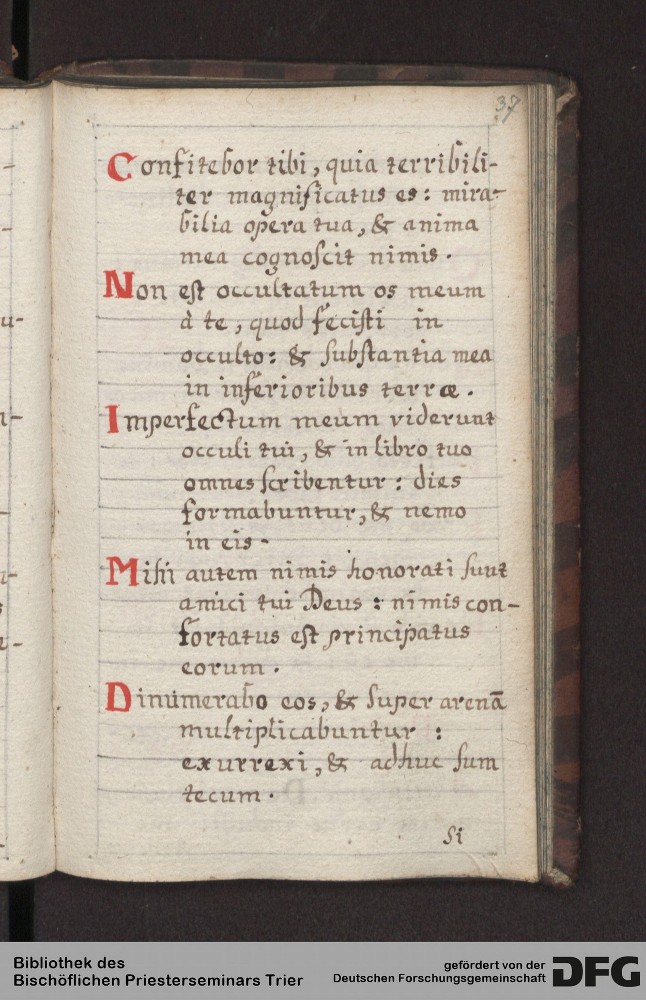 37
Confitebor tibi, quia terribili-
ter magnificatus es: mira-
bilia opera tua, & anima
mea cognoscit nimis.
Non est occultatum os meum
à te, quod fecisti in
occulto: & substantia mea
in inferioribus terræ.
Imperfectum meum viderunt
occuli tui, & in libro tuo
omnes scribentur: dies
formabuntur, & nemo
in eis.
Mihi autem nimis honorati sunt
amici tui Deus: nimis con-
fortatus est principatus
eorum.
Dinumerabo eos, & super arenā
multiplicabuntur:
exurrexi, & adhuc sum
tecum.
Si
Bibliothek des
Bischöflichen Priesterseminars Trier
gefördert von der
Deutschen Forschungsgemeinschaft
DFG